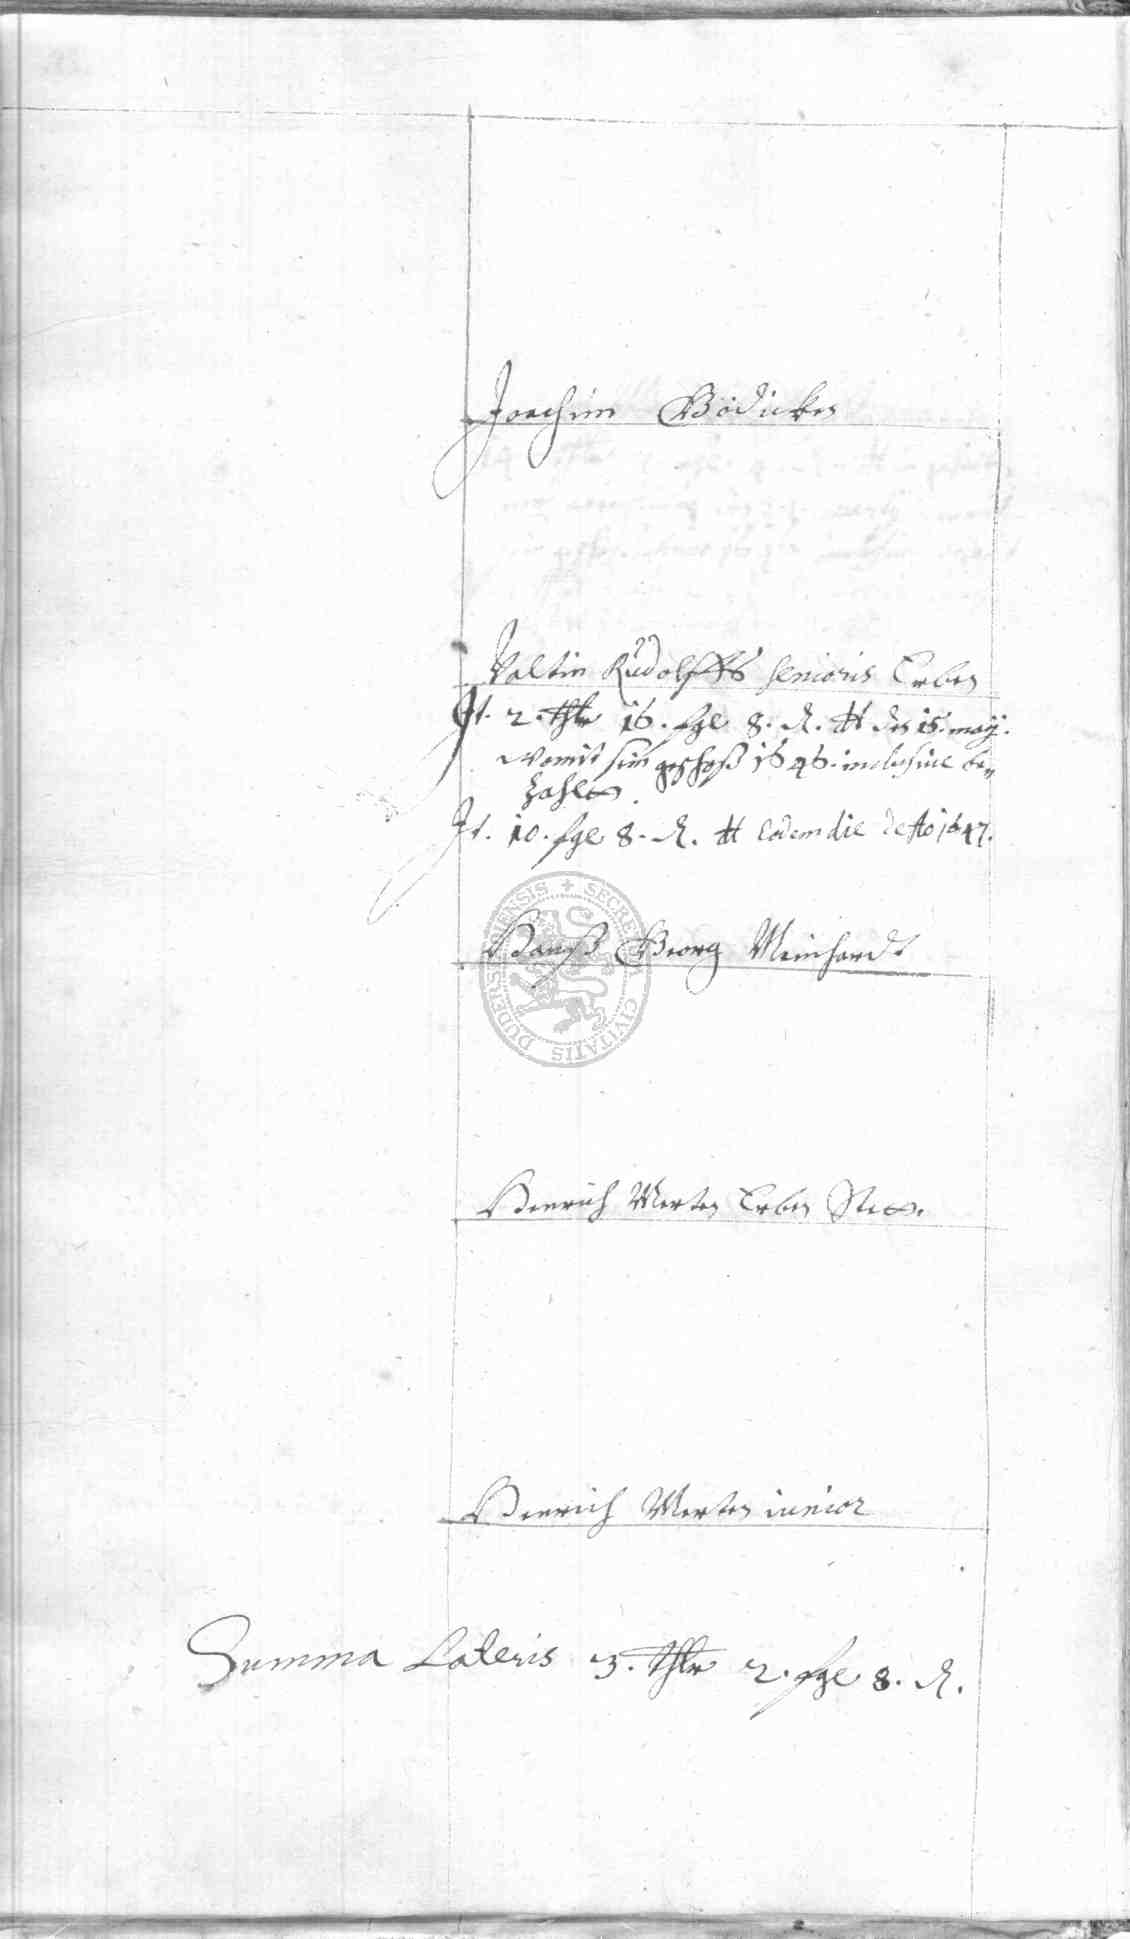 Joachim Bödicker
Valtin Rudolffs senioris Erben
It. 2. thlr 16. fgl 8. d. tt den 15. maij.
womit sein geschoß 1646. inclusive be„
zahlt.
It. 10. fgl 8. d. tt eodem die de Ao 1647.
Hanß Georg Meinhardt
Henrich Merten Erben
Henrich Merten iunior
Summa Lateris 3. thlr 2. fgl 8. d.
SECRETUM CIVITATIS DUDERSTADIENSIS